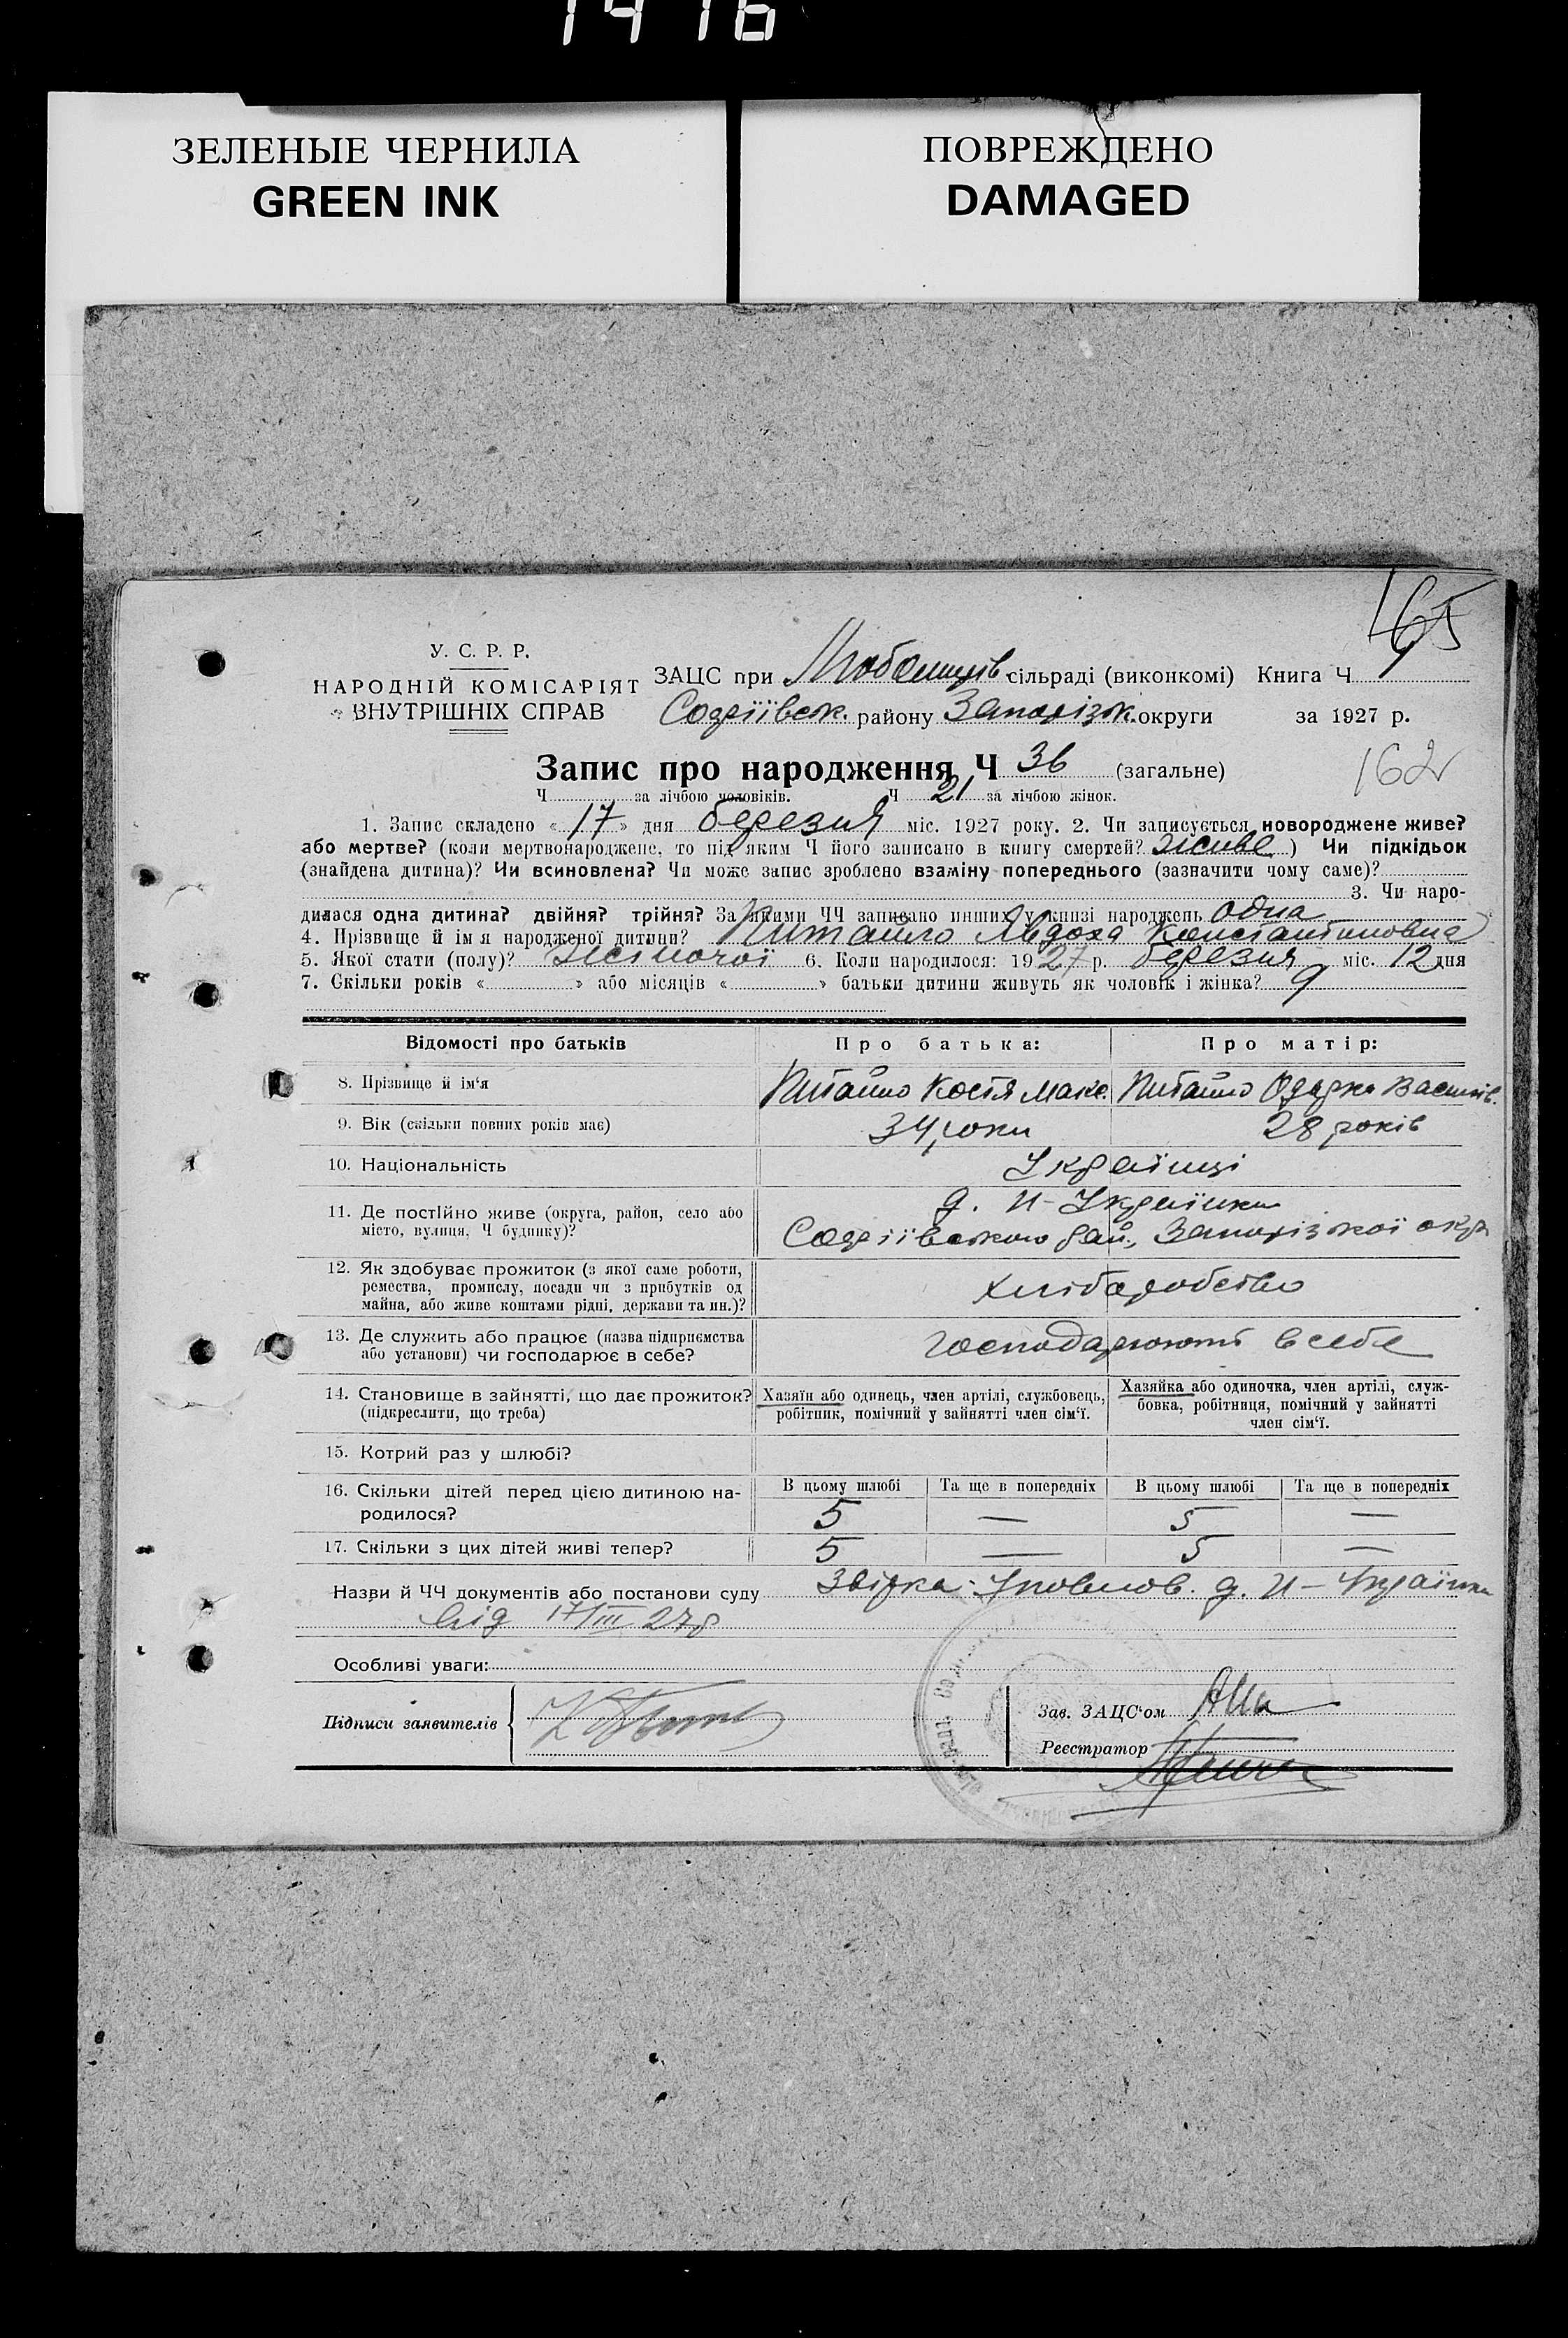 1416
ЗЕЛЕНЫЕ ЧЕРНИЛА
GREEN INK
ПОВРЕЖДЕНО
DAMAGED
165
У. С. Р. Р.
НАРОДНІЙ КОМІСАРІЯТ
ВНУТРІШНІХ СПРАВ
ЗАЦС при Любомирів сільраді (виконкомі) Книга Ч
Софіївськ. району Запорізьк. округи за 1927 р.
Запис про народження Ч 36 (загальне)
162
Ч за лічбою чоловіків. Ч 21 за лічбою жінок.
1. Запис складено «17» дня березня міс. 1927 року. 2. Чи записується новороджене живе?
або мертве? (коли мертвонароджене, то під яким Ч його записано в книгу смертей? живе) Чи підкідьок
(знайдена дитина)? Чи всиновлена? Чи може запис зроблено взаміну попереднього (зазначити чому саме)?
3. Чи наро-
дилася одна дитина? двійня? трійня? За якими ЧЧ записано инших у книзі народжень одна
4. Прізвище й імя народженої дитини? Питайло Явдоха Константиновна
5. Якої стати (полу)? жіночої 6. Коли народилося: 1927 р. березня міс. 12 дня
7. Скільки років « » або місяців « » батьки дитини живуть як чоловік і жінка? 9
Відомості про батьків Про батька: Про матір:
8. Прізвище й ім'я Питайло Костя Макс. Питайло Одарка Василів.
9. Вік (скільки повних років має) 34 роки 28 років
10. Національність Українці
11. Де постійно живе (округа, район, село або
місто, вулиця, Ч будинку)?
д. Н-Українка
Софіївського рай., Запорізької окр
12. Як здобуває прожиток (з якої саме роботи,
ремества, промислу, посади чи з прибутків од
майна, або живе коштами рідні, держави та ин.)?
хліборобство
13. Де служить або працює (назва підприємства
або установи) чи господарює в себе?
господарюють в себе
14. Становище в зайнятті, що дає прожиток?
(підкреслити, що треба)
Хазяїн або одинець, член артілі, службовець,
робітник, помічний у зайнятті член сім'ї.
Хазяйка або одиночка, член артілі, служ-
бовка, робітниця, помічний у зайнятті
член сім'ї.
15. Котрий раз у шлюбі?
16. Скільки дітей перед цією дитиною на-
родилося?
В цьому шлюбі Та ще в попередніх В цьому шлюбі Та ще в попередніх
5 — 5 —
17. Скільки з цих дітей живі тепер? 5 — 5 —
Назви й ЧЧ документів або постанови суду Звірка Уповнов. д. Н-Українки
від 17/III 27р
Особливі уваги:
Підписи заявителів
Зав. ЗАЦС'ом
Реєстратор